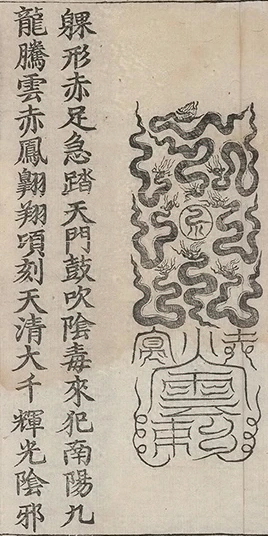 躶形赤足急踏天門鼓吹陰毒來犯南陽九
龍騰雲赤鳳翺翔頃刻天清大千輝光陰邪